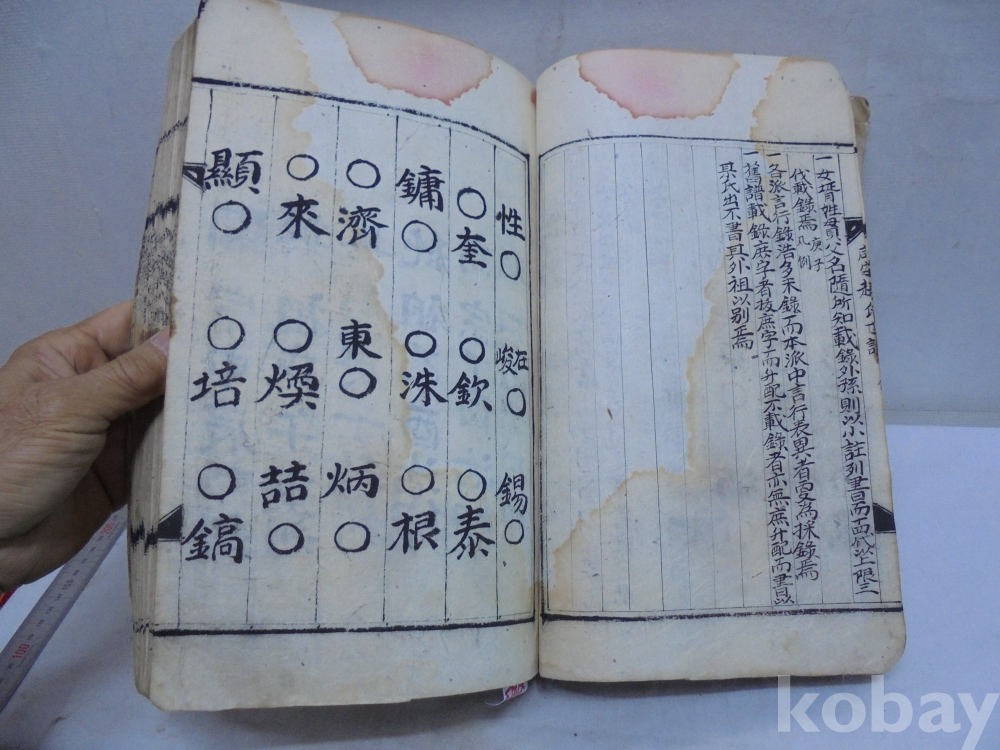 一女壻姓貫公名隨所知載錄外孫則以小註列書而而代以上限三
代載錄焉 庚子凡例
一各派言行錄浩多未錄而本派中言行表異者 為採錄焉
一舊譜載錄庶字者拔庶字而升配不載錄者亦無庶升配而書 以
具氏出不書具外祖以別焉
性○ 在峻○ 錫○
○奎 ○欽 ○泰
鏞○ ○洙 ○根
○濟 東○ 炳○
○來 ○煥 喆○
顯○ ○培 ○鎬
kobay